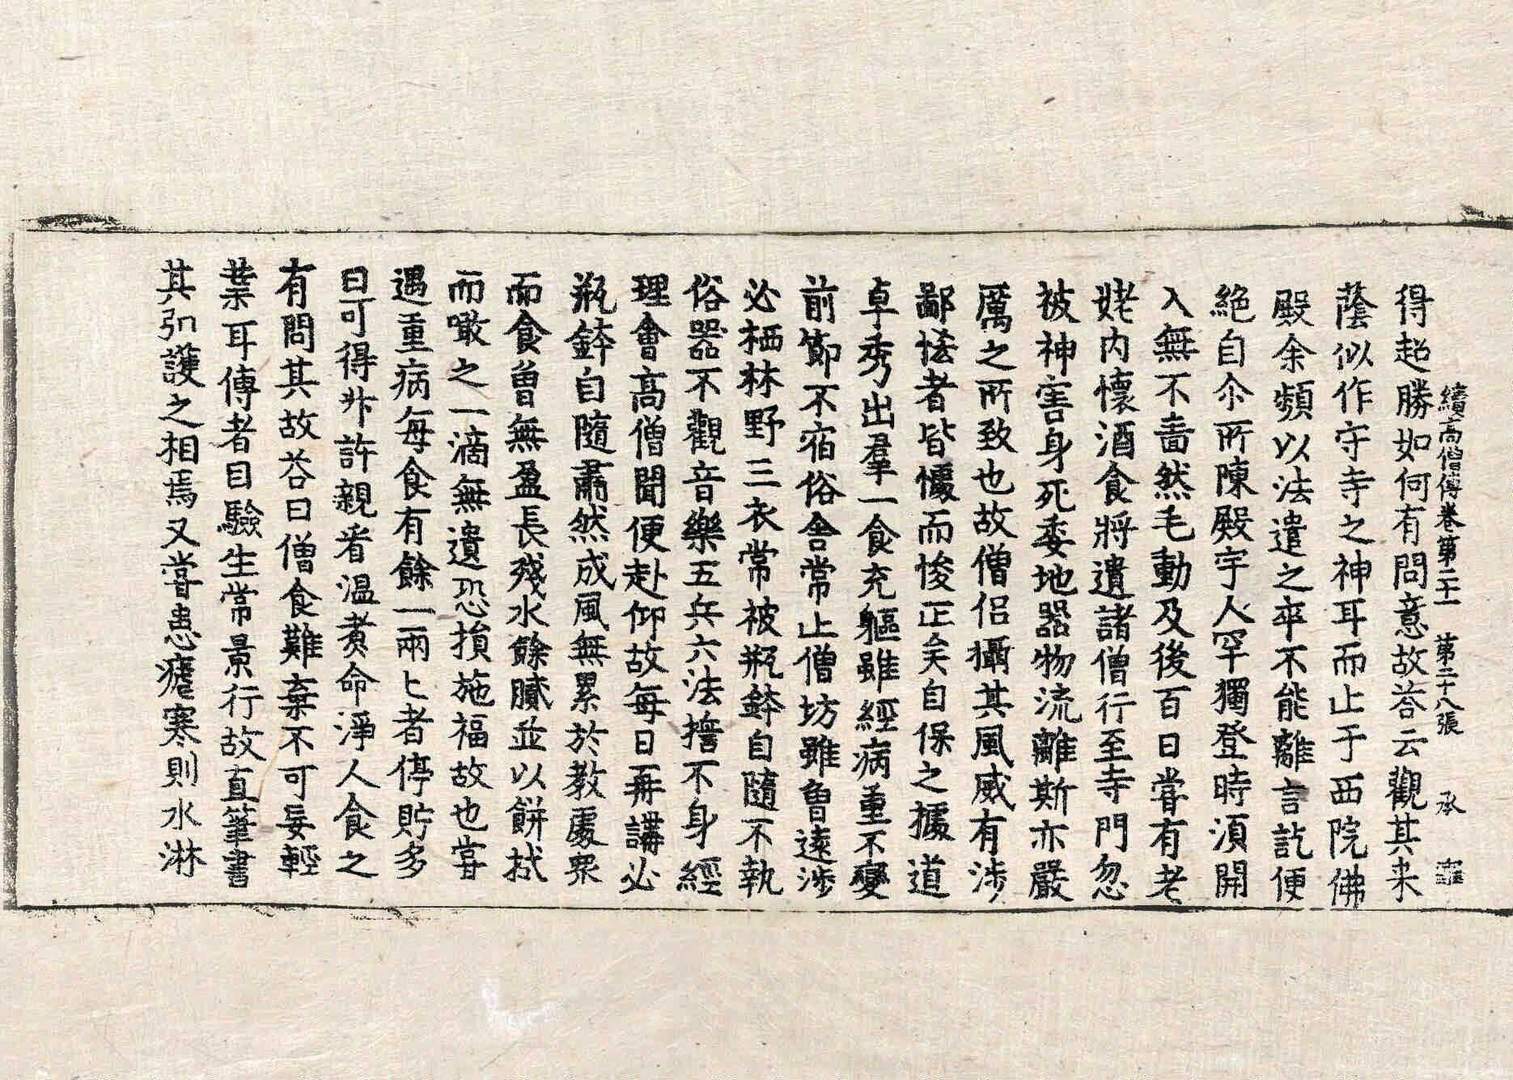 續高僧傳卷第二十一　第二十八張　承
得起勝如何有問意故荅云觀其来
蔭似作守寺之神耳而止于西院佛
殿余頻以法遣之卒不能離言訖便
絕自尒所陳殿宇人罕獨登時湏開
入無不嗇然毛動及後百日嘗有老
姥内懷酒食將遺諸僧行至寺門忽
被神害身死委地器物流離斯亦嚴
厲之所致也故僧侶攝其風威有涉
鄙恡者皆懼而悛正矣自保之據道
卓秀出羣一食充軀雖經病重不變
前節不宿俗舍常止僧坊雖曾遠涉
必栖林野三衣常被瓶鉢自隨不執
俗器不觀音樂五兵六法誓不身經
理會高僧聞便赴仰故每日再講必
瓶鉢自隨肅然成風無累於教處衆
而食曽無盈長殘水餘膩並以餅拭
而噉之一滴無遺恐損施福故也甞
遇重病每食有餘一兩匕者停貯多
日可得升許親看温煑命淨人食之
有問其故荅曰僧食難棄不可妄輕
業耳傳者目驗生常景行故直筆書
其弘護之相焉又甞患瘧寒則水淋